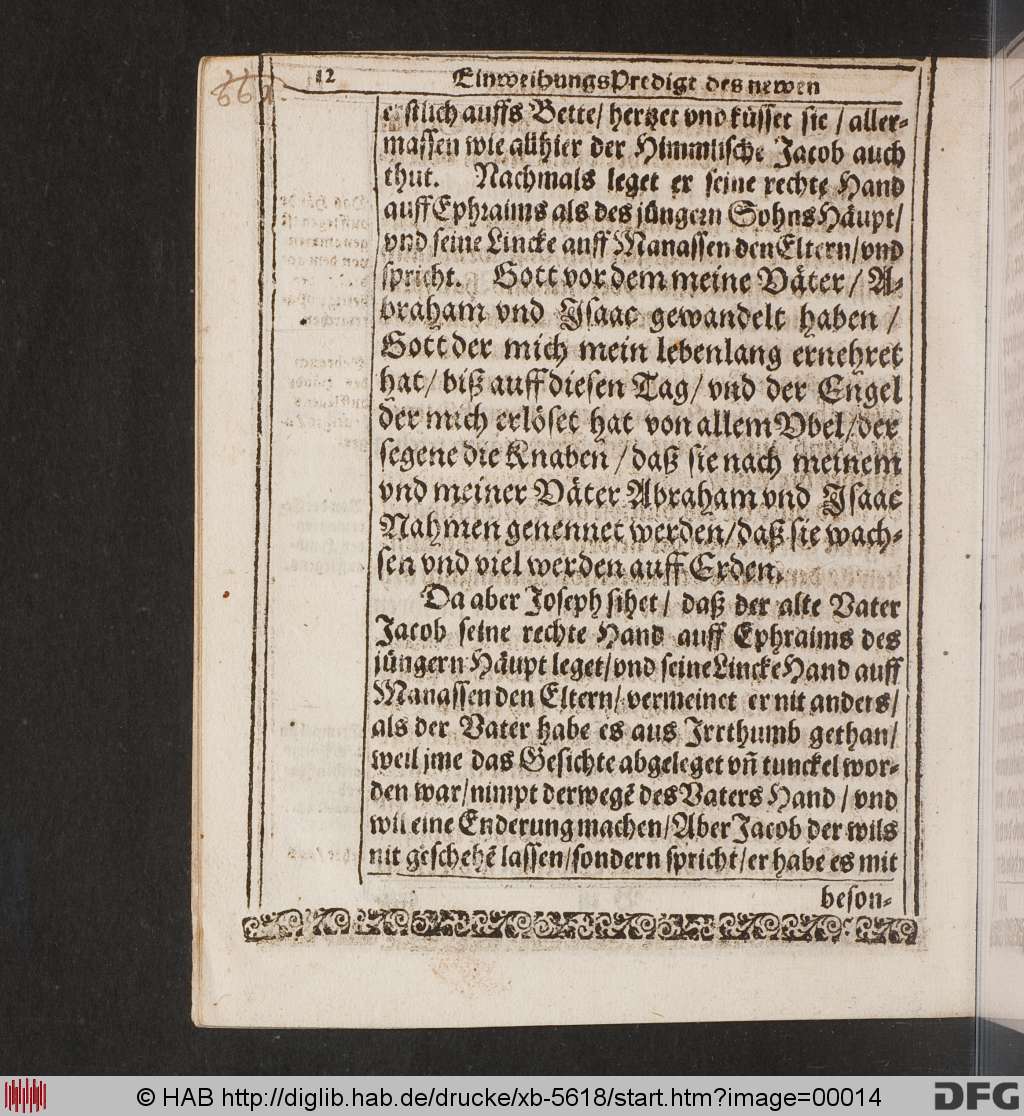 12 EinweihungsPredigt des newen
erstlich auffs Bette/ hertzet vnd küsset sie / aller-
massen wie allhier der Himmlische Jacob auch
thut. Nachmals leget er seine rechte Hand
auff Ephraims als des jüngern Sohns Häupt/
vnd seine Lincke auff Manassen den Eltern/ vnd
spricht. Gott vor dem meine Väter / A-
braham vnd Isaac gewandelt haben /
Gott der mich mein lebenlang ernehret
hat/ biß auff diesen Tag/ vnd der Engel
der mich erlöset hat von allem Vbel/ der
segene die Knaben / daß sie nach meinem
vnd meiner Väter Abraham vnd Isaac
Nahmen genennet werden/ daß sie wach-
sen vnd viel werden auff Erden.
Da aber Joseph sihet / daß der alte Vater
Jacob seine rechte Hand auff Ephraims des
jüngern Häupt leget/ vnd seine Lincke Hand auff
Manassen den Eltern/ vermeinet er nit anders/
als der Vater habe es aus Irrthumb gethan/
weil jme das Gesichte abgeleget vñ tunckel wor-
den war/ nimpt derwegē des Vaters Hand / vnd
wil eine Enderung machen/ Aber Jacob der wils
nit geschehē lassen/ sondern spricht/ er habe es mit
beson-
© HAB http://diglib.hab.de/drucke/xb-5618/start.htm?image=00014
DFG